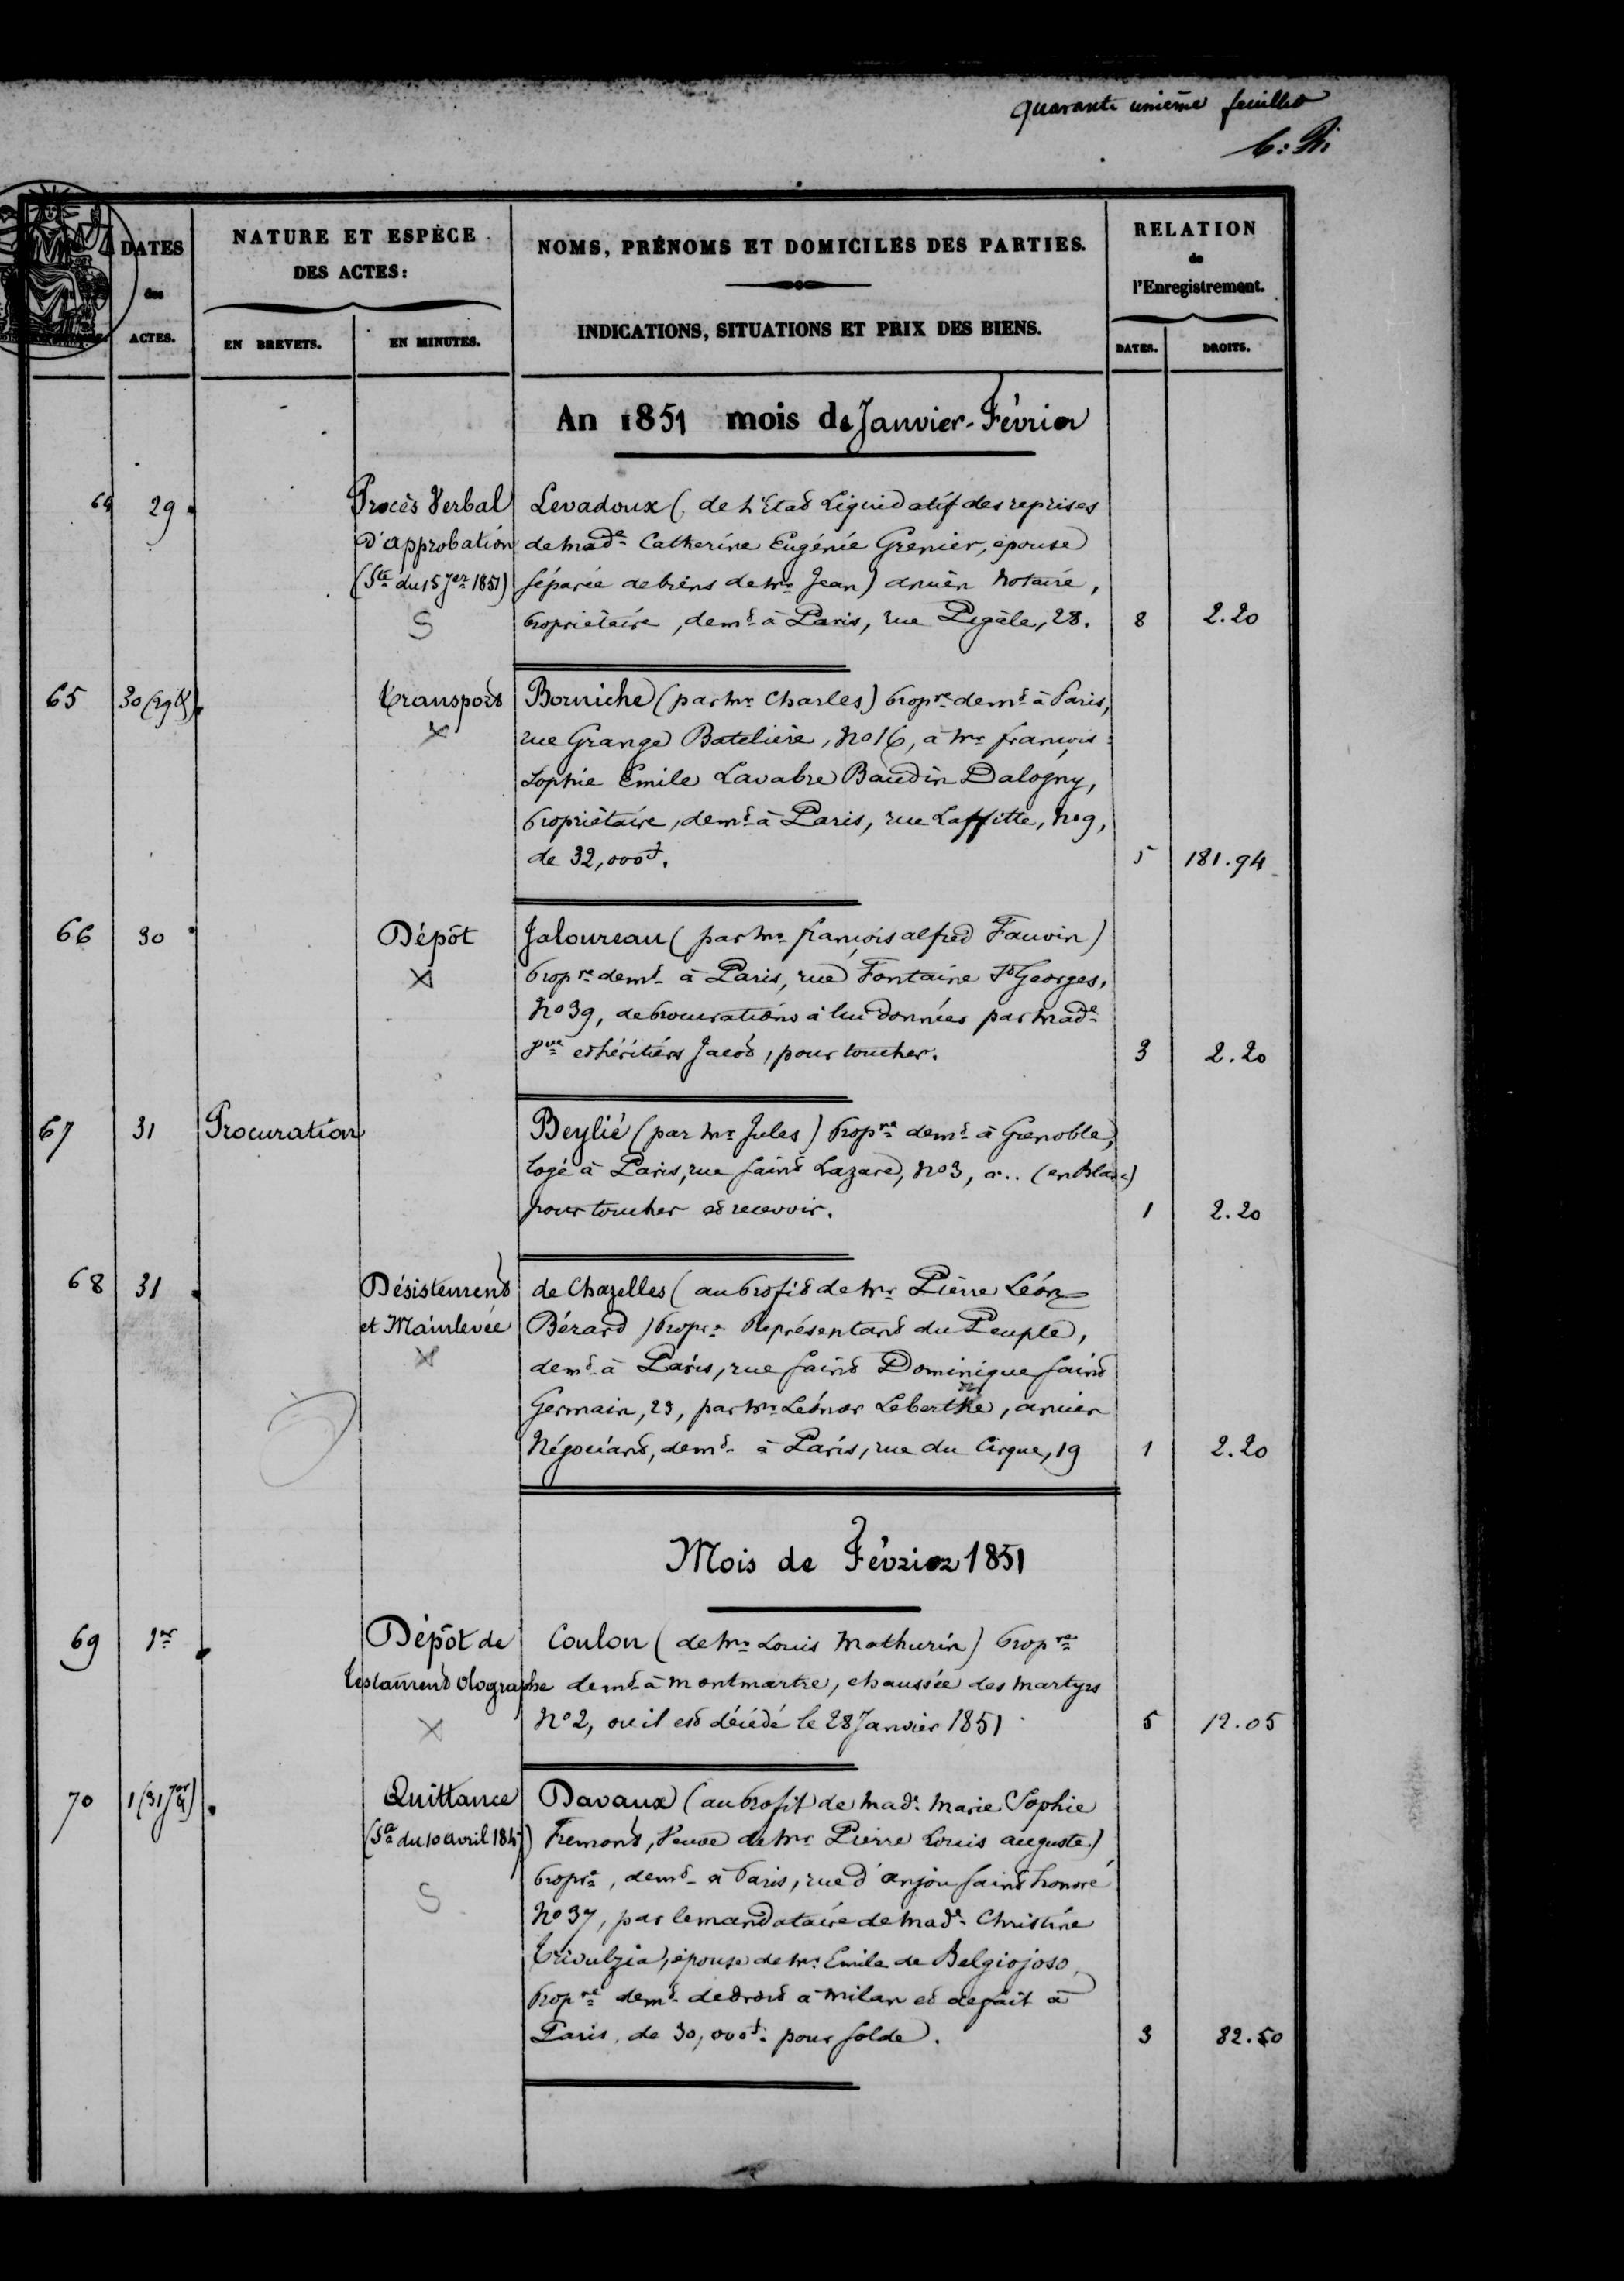 quarante unième feuillet
DATES
des
ACTES.
NATURE ET ESPÈCE
DES ACTES:
EN BREVETS.
EN MINUTES.
NOMS, PRÉNOMS ET DOMICILES DES PARTIES.
INDICATIONS, SITUATIONS ET PRIX DES BIENS.
RELATION
de
l'Enregistrement.
DATES.
DROITS.
An 1851 mois de Janvier-Février
64 29 Procès Verbal Levadoux (de l'Etat Liquidatif des reprises
D'approbation de Made Catherine Eugénie Grenier, épouse
(Ste du 15 Jer 1851) séparée de biens de Mr Jean) ancien Notaire,
S propriétaire, demt à Paris, rue Pigale, 28. 8 2.20
65 30 (29 &) Transport Borniche (par Mr Charles) propre demt à Paris,
X rue Grange Batelière, No 16, à Mr françois
Sophie Emile Lavabre Baudin Dalogny,
propriétaire, demt à Paris, rue Laffitte, No 9,
de 32,000f. 5 181.94
66 30 Dépôt Jaloureau (par Mr françois alfred Fauvin)
X propre demt à Paris, rue Fontaine St Georges,
No 39, de procurations à lui données par Made
Vve et héritiers Jacob, pour toucher. 3 2.20
67 31 Procuration Beylié (par Mr Jules) propre demt à Grenoble,
logé à Paris, rue saint Lazare, No 3, à.. (en Blanc)
pour toucher et recevoir. 1 2.20
68 31 Désistement de Chazelles (au profit de Mr Pierre Léon
et Mainlevée Bérard) propre Représentant du Peuple,
X demt à Paris, rue saint Dominique saint
Germain, 23, par Mr Lebertre, ancien
Négociant, demt à Paris, rue du Cirque, 19 1 2.20
Mois de Février 1851
69 1er Dépôt de Coulon (de Mr Louis Mathurin) propre
testament olographe demt à Montmartre, chaussée des Martyrs
X No 2, où il est décédé le 28 Janvier 1851 5 12.05
70 1 (31 Jer &) Quittance Davaux (au profit de Made Marie Sophie
(Ste du 10 avril 184) Fremont, Veuve de Mr Pierre Louis auguste)
propre, demt à Paris, rue d'anjou saint honoré
S No 37, par le mandataire de Made Christine
Trivulzia, épouse de Mr Emile de Belgiojoso,
propre demt de droit à Milan et de fait à
Paris, de 30,000f. pour solde. 3 82.50